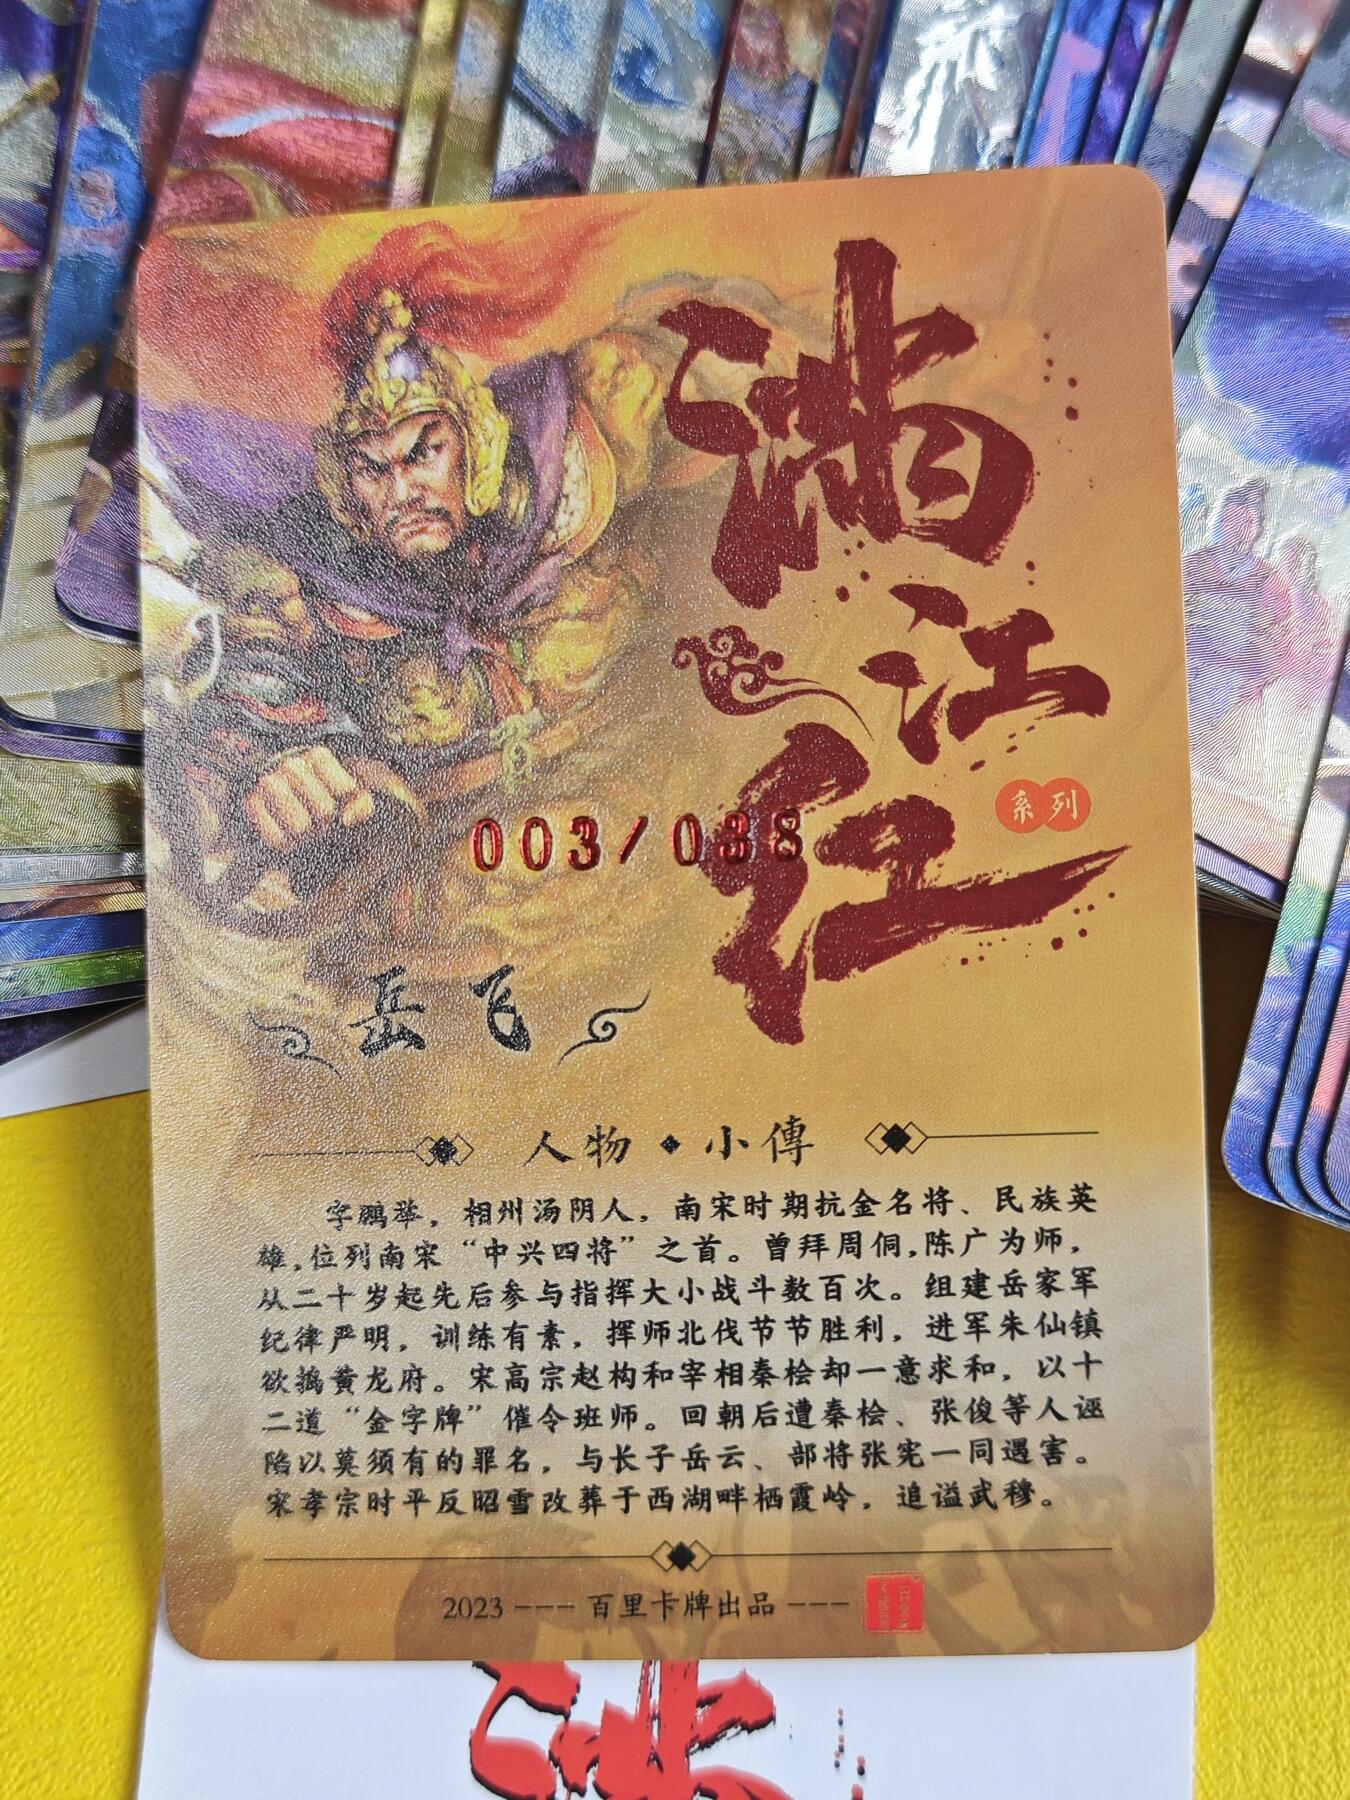 满江红
系列
003/038
岳飞
人物·小傳
字鹏举，相州汤阴人，南宋时期抗金名将、民族英
雄，位列南宋“中兴四将”之首。曾拜周侗，陈广为师，
从二十岁起先后参与指挥大小战斗数百次。组建岳家军
纪律严明，训练有素，挥师北伐节节胜利，进军朱仙镇
欲捣黄龙府。宋高宗赵构和宰相秦桧却一意求和，以十
二道“金字牌”催令班师。回朝后遭秦桧、张俊等人诬
陷以莫须有的罪名，与长子岳云、部将张宪一同遇害。
宋孝宗时平反昭雪改葬于西湖畔栖霞岭，追谥武穆。
2023 --- 百里卡牌出品 ---